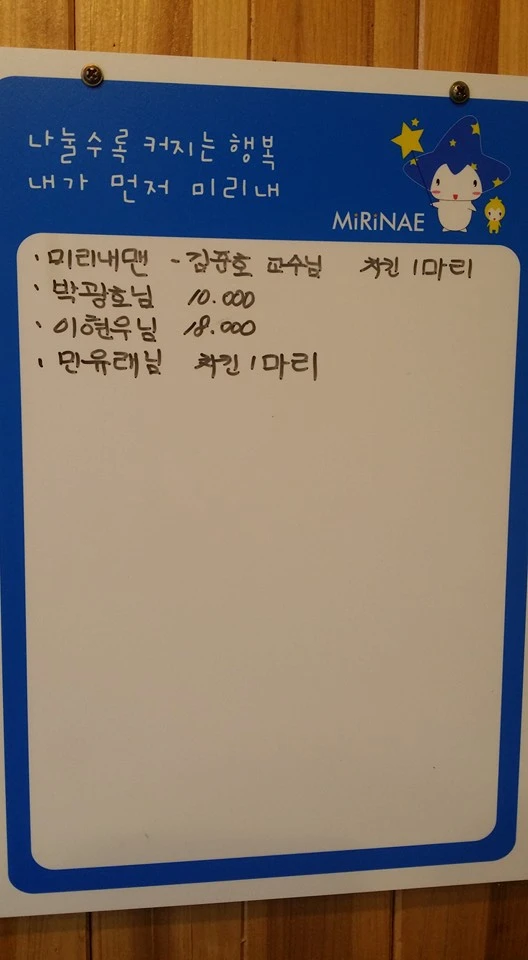 나눌수록 커지는 행복
내가 먼저 미리내
MiRiNAE
· 미리내맨 - 김준호 교수님 치킨 1마리
· 박광호님 10.000
· 이현우님 18.000
· 민유태님 치킨 1마리